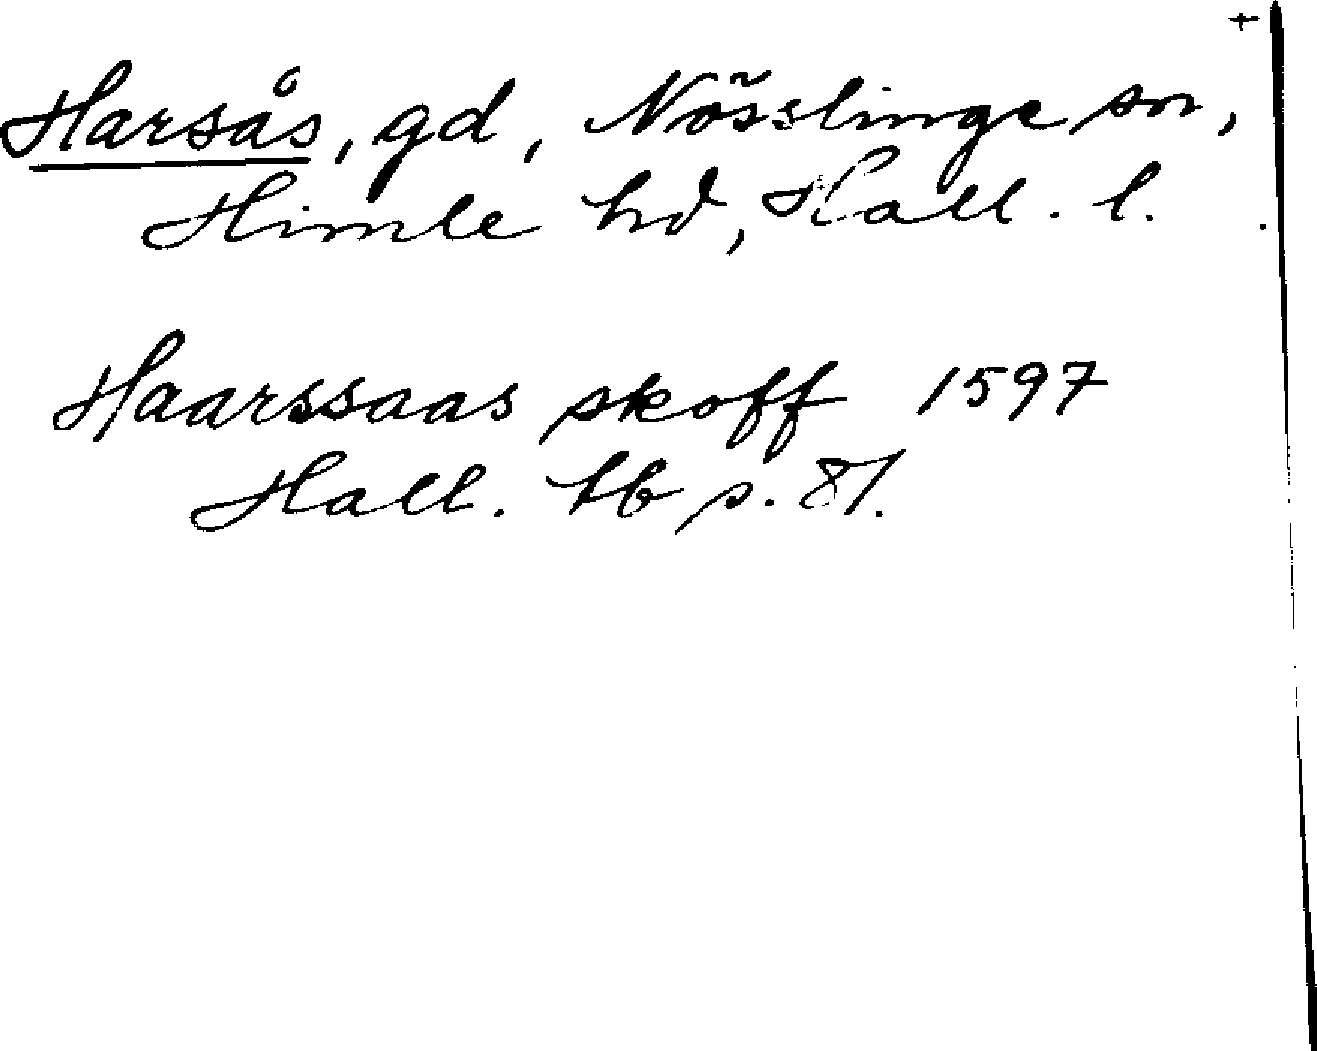 +
Harsås, gd, Nösslinge sn,
Himle hd, Hall. l.
Haarssaas skoff 1597
Hall. bb s. 81.